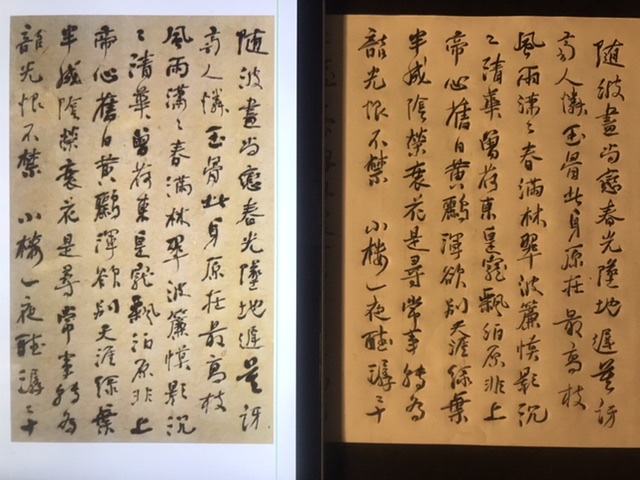 随波盡尚戀春光墜地遲莫訝
高人憐玉骨此身原在最高枝
風雨潇々春満林翠波簾幙影沉
々清華曾荷東皇寵飄泊原非上
帝心舊日黃鸝渾欲别天涯綠葉
半成陰榮衰花是尋常事轉為
韶光恨不禁 小樓一夜聽潺
随波盡尚戀春光墜地遲莫訝
高人憐玉骨此身原在最高枝
風雨潇々春満林翠波簾幙影沉
々清華曾荷東皇寵飄泊原非上
帝心舊日黃鸝渾欲别天涯綠葉
半成陰榮衰花是尋常事轉為
韶光恨不禁 小樓一夜聽潺